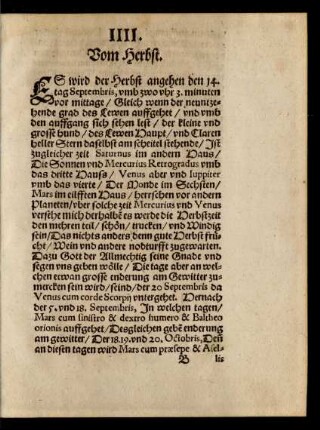 IIII.
Vom Herbst.
ES wird der Herbst angehen den 14.
tag Septembris, vmb zwo vhr 3. minuten
vor mittage / Gleich wenn der neuntze-
hende grad des Lewen auffgehet / vnd vmb
den auffgang sich sehen lest / der kleine vnd
grosse hund / des Lewen Haupt / vnd Claren
heller Stern daselbst am scheitel stehende / Ist
zugleicher zeit Saturnus im andern Haus /
Die Sonnen vnd Mercurius Retrogradus vmb
das dritte Hauss / Venus aber vnd Iuppiter
vmb das vierte / Der Monde im Sechsten /
Mars im eilfften Haus / herrschen vor andern
Planeten / vber solche zeit Mercurius vnd Venus
versehe mich derhalbē es werde die Herbstzeit
den mehren teil / schön / trucken / vnd Windig
sein / Das nichts anders denn gute Herbst früch-
te / Wein vnd andere nodturfft zugewarten.
Dazu Gott der Allmechtig seine Gnade vnd
segen vns geben wölle / Die tage aber an wel-
chen etwan grosse enderung am Gewitter zu-
mercken sein wird / seind / der 20 Septembris da
Venus cum corde Scorpij vntergehet. Dernach
der 5. vnd 18. Septembris, In welchen tagen /
Mars cum sinistro & dextro humero & Baltheo
orionis auffgehet / Desgleichen gebē enderung
am gewitter / Der 18. 19. vnd 20. Octobris, Deñ
an diesen tagen wird Mars cum præsepe & Asel-
B lis